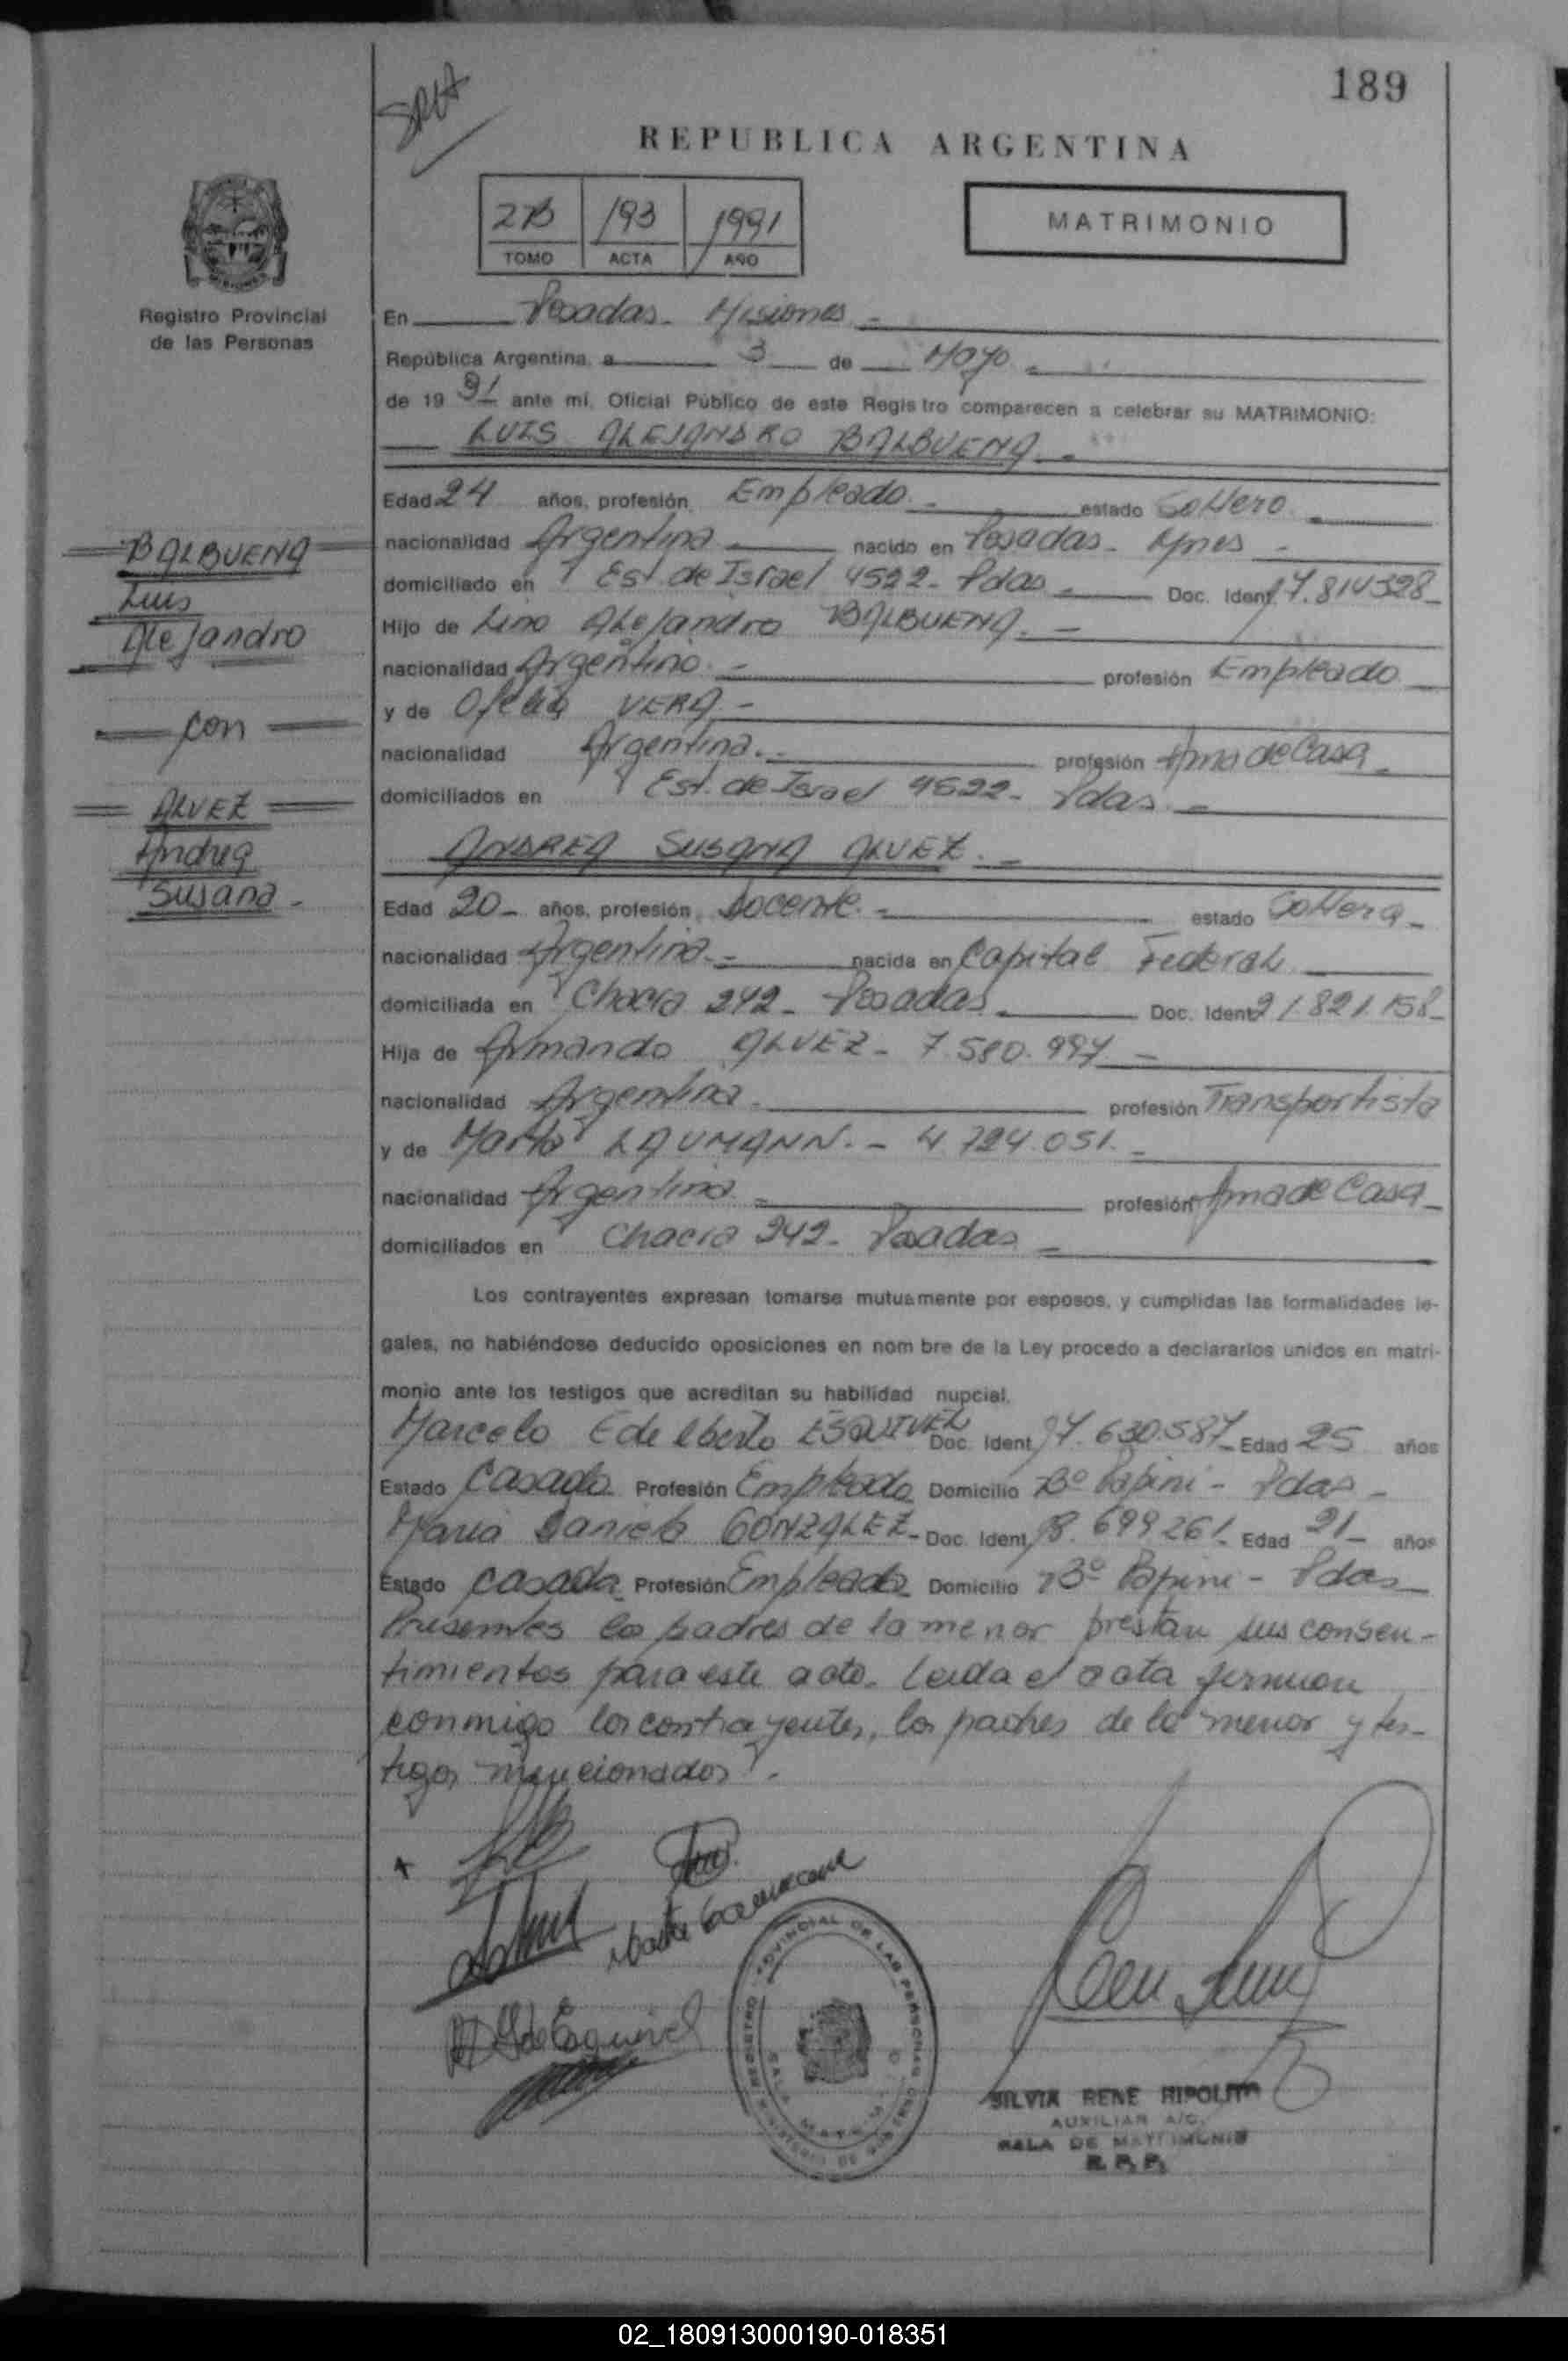 189
REPUBLICA ARGENTINA
MATRIMONIO
2B 193 1991
TOMO ACTA AÑO
Registro Provincial
de las Personas
En Posadas - Misiones -
República Argentina, a 3 de Mayo -
de 19 91 ante mí, Oficial Público de este Registro comparecen a celebrar su MATRIMONIO:
LUIS ALEJANDRO BALBUENA -
Edad 24 años, profesión Empleado - estado Soltero -
nacionalidad Argentina nacido en Posadas - Mnes -
domiciliado en Est. de Israel 4522 - Pdas - Doc. Ident. 17.814328 -
Hijo de Lino Alejandro BALBUENA. -
nacionalidad Argentino - profesión Empleado
y de Ofelia VERA -
nacionalidad Argentina. - profesión Ama de Casa -
domiciliados en Est. de Israel 4522 - Pdas. -
ANDREA SUSANA ALVEZ. -
Edad 20 - años, profesión Docente. - estado Soltera -
nacionalidad Argentina. - nacida en Capital Federal
domiciliada en Chacra 242 - Posadas Doc. Ident 21.821.158 -
Hija de Armando ALVEZ - 7.580.997 -
nacionalidad Argentina profesión Transportista
y de Marta LAUMANN. - 4.724.051. -
nacionalidad Argentina - profesión Ama de Casa -
domiciliados en Chacra 242 - Posadas -
Los contrayentes expresan tomarse mutuamente por esposos, y cumplidas las formalidades le-
gales, no habiéndose deducido oposiciones en nom bre de la Ley procedo a declararlos unidos en matri-
monio ante los testigos que acreditan su habilidad nupcial.
Marcelo Edelberto ESQUIVEL Doc. Ident 17.630.587 - Edad 25 años
Estado Casado Profesión Empleado Domicilio Bº Papini - Pdas -
Maria Daniela GONZALEZ - Doc. Ident 18.699261 - Edad 21 - años
Estado Casada Profesión Empleada Domicilio Bº Papini - Pdas -
Presentes los padres de la menor prestan sus consen-
timientos para este acto. Leida el acta firman
conmigo los contrayentes, los padres de la menor y tes-
tigos mencionados. -
BALBUENA
Luis
Alejandro
con
ALVEZ
Andrea
Susana -
de Esquivel
SILVIA RENE RIPOLL
AUXILIAR A/C.
SALA DE MATRIMONIO
R.P.P.
02_180913000190-018351